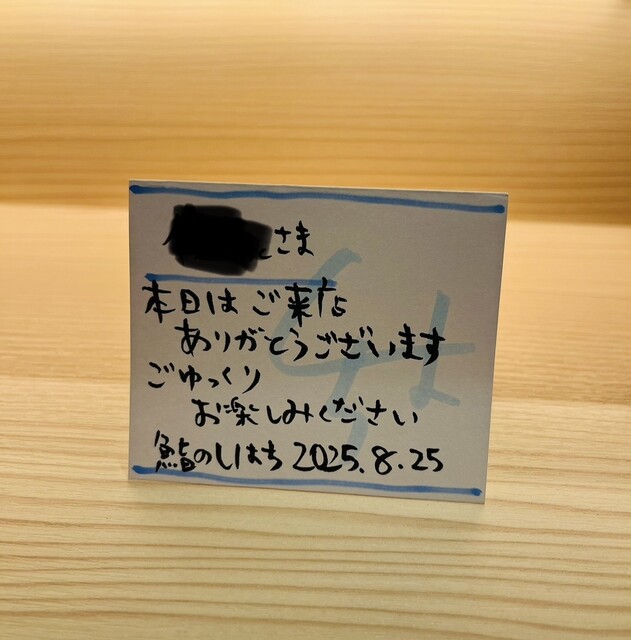 さま
本日はご来店
ありがとうございます
ごゆっくり
お楽しみください
鮨のしはち 2025.8.25